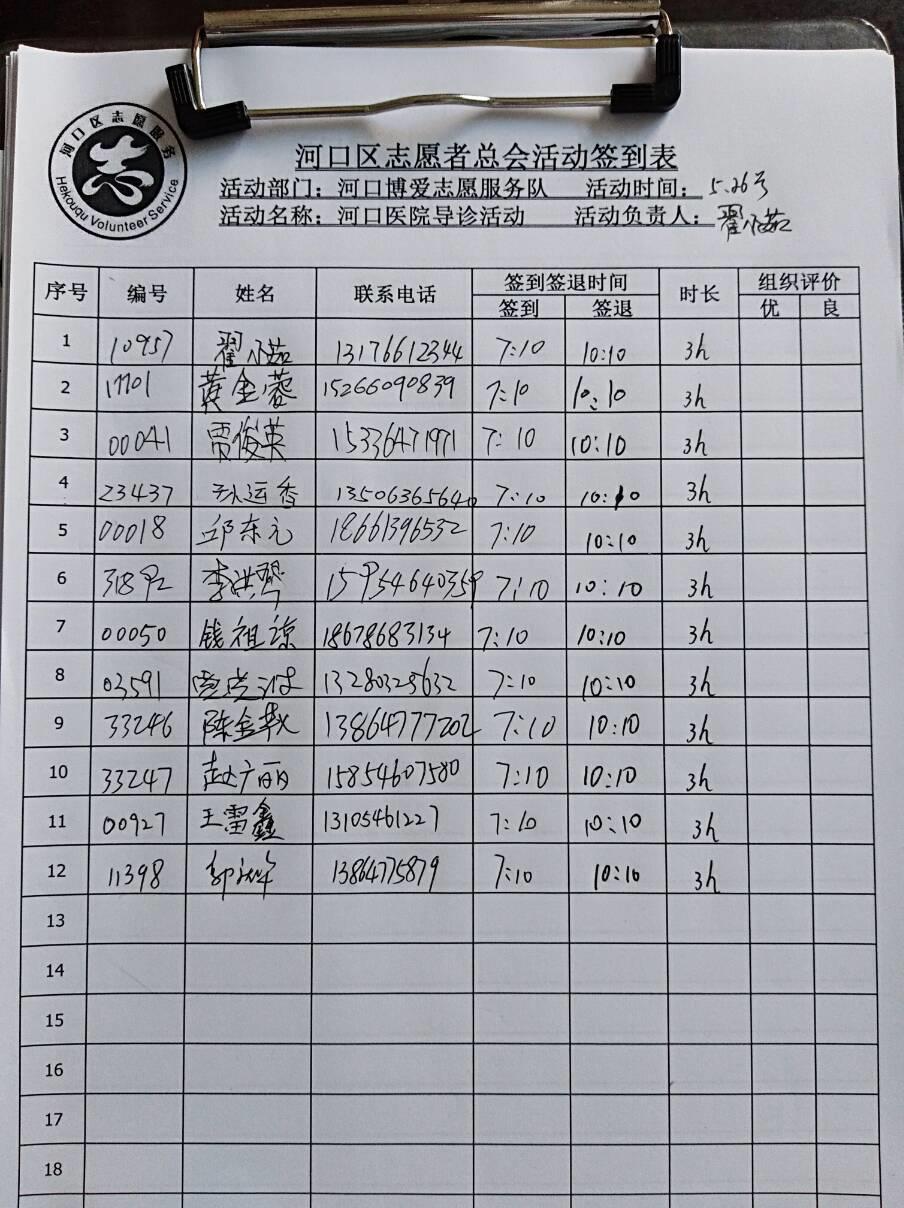 河口区志愿服务
Hekouqu Volunteer Service
河口区志愿者总会活动签到表
活动部门：河口博爱志愿服务队 活动时间：5.26号
活动名称：河口医院导诊活动 活动负责人：翟小茹
序号 编号 姓名 联系电话 签到签退时间 时长 组织评价
签到 签退 优 良
1 10957 翟小茹 13176612344 7:10 10:10 3h
2 11101 黄金蓉 15266090839 7:10 10:10 3h
3 00041 贾俊英 15336471971 7:10 10:10 3h
4 23437 孙运香 13506365640 7:10 10:10 3h
5 00018 邱东元 18661396532 7:10 10:10 3h
6 李洪琴 15954640359 7:10 10:10 3h
7 00050 钱祖琼 18678683134 7:10 10:10 3h
8 03591 13280329632 7:10 10:10 3h
9 33246 陈金 13864777202 7:10 10:10 3h
10 33247 赵广丽 15854607580 7:10 10:10 3h
11 00927 王雷鑫 13105461227 7:10 10:10 3h
12 11398 郭 13864775879 7:10 10:10 3h
13
14
15
16
17
18